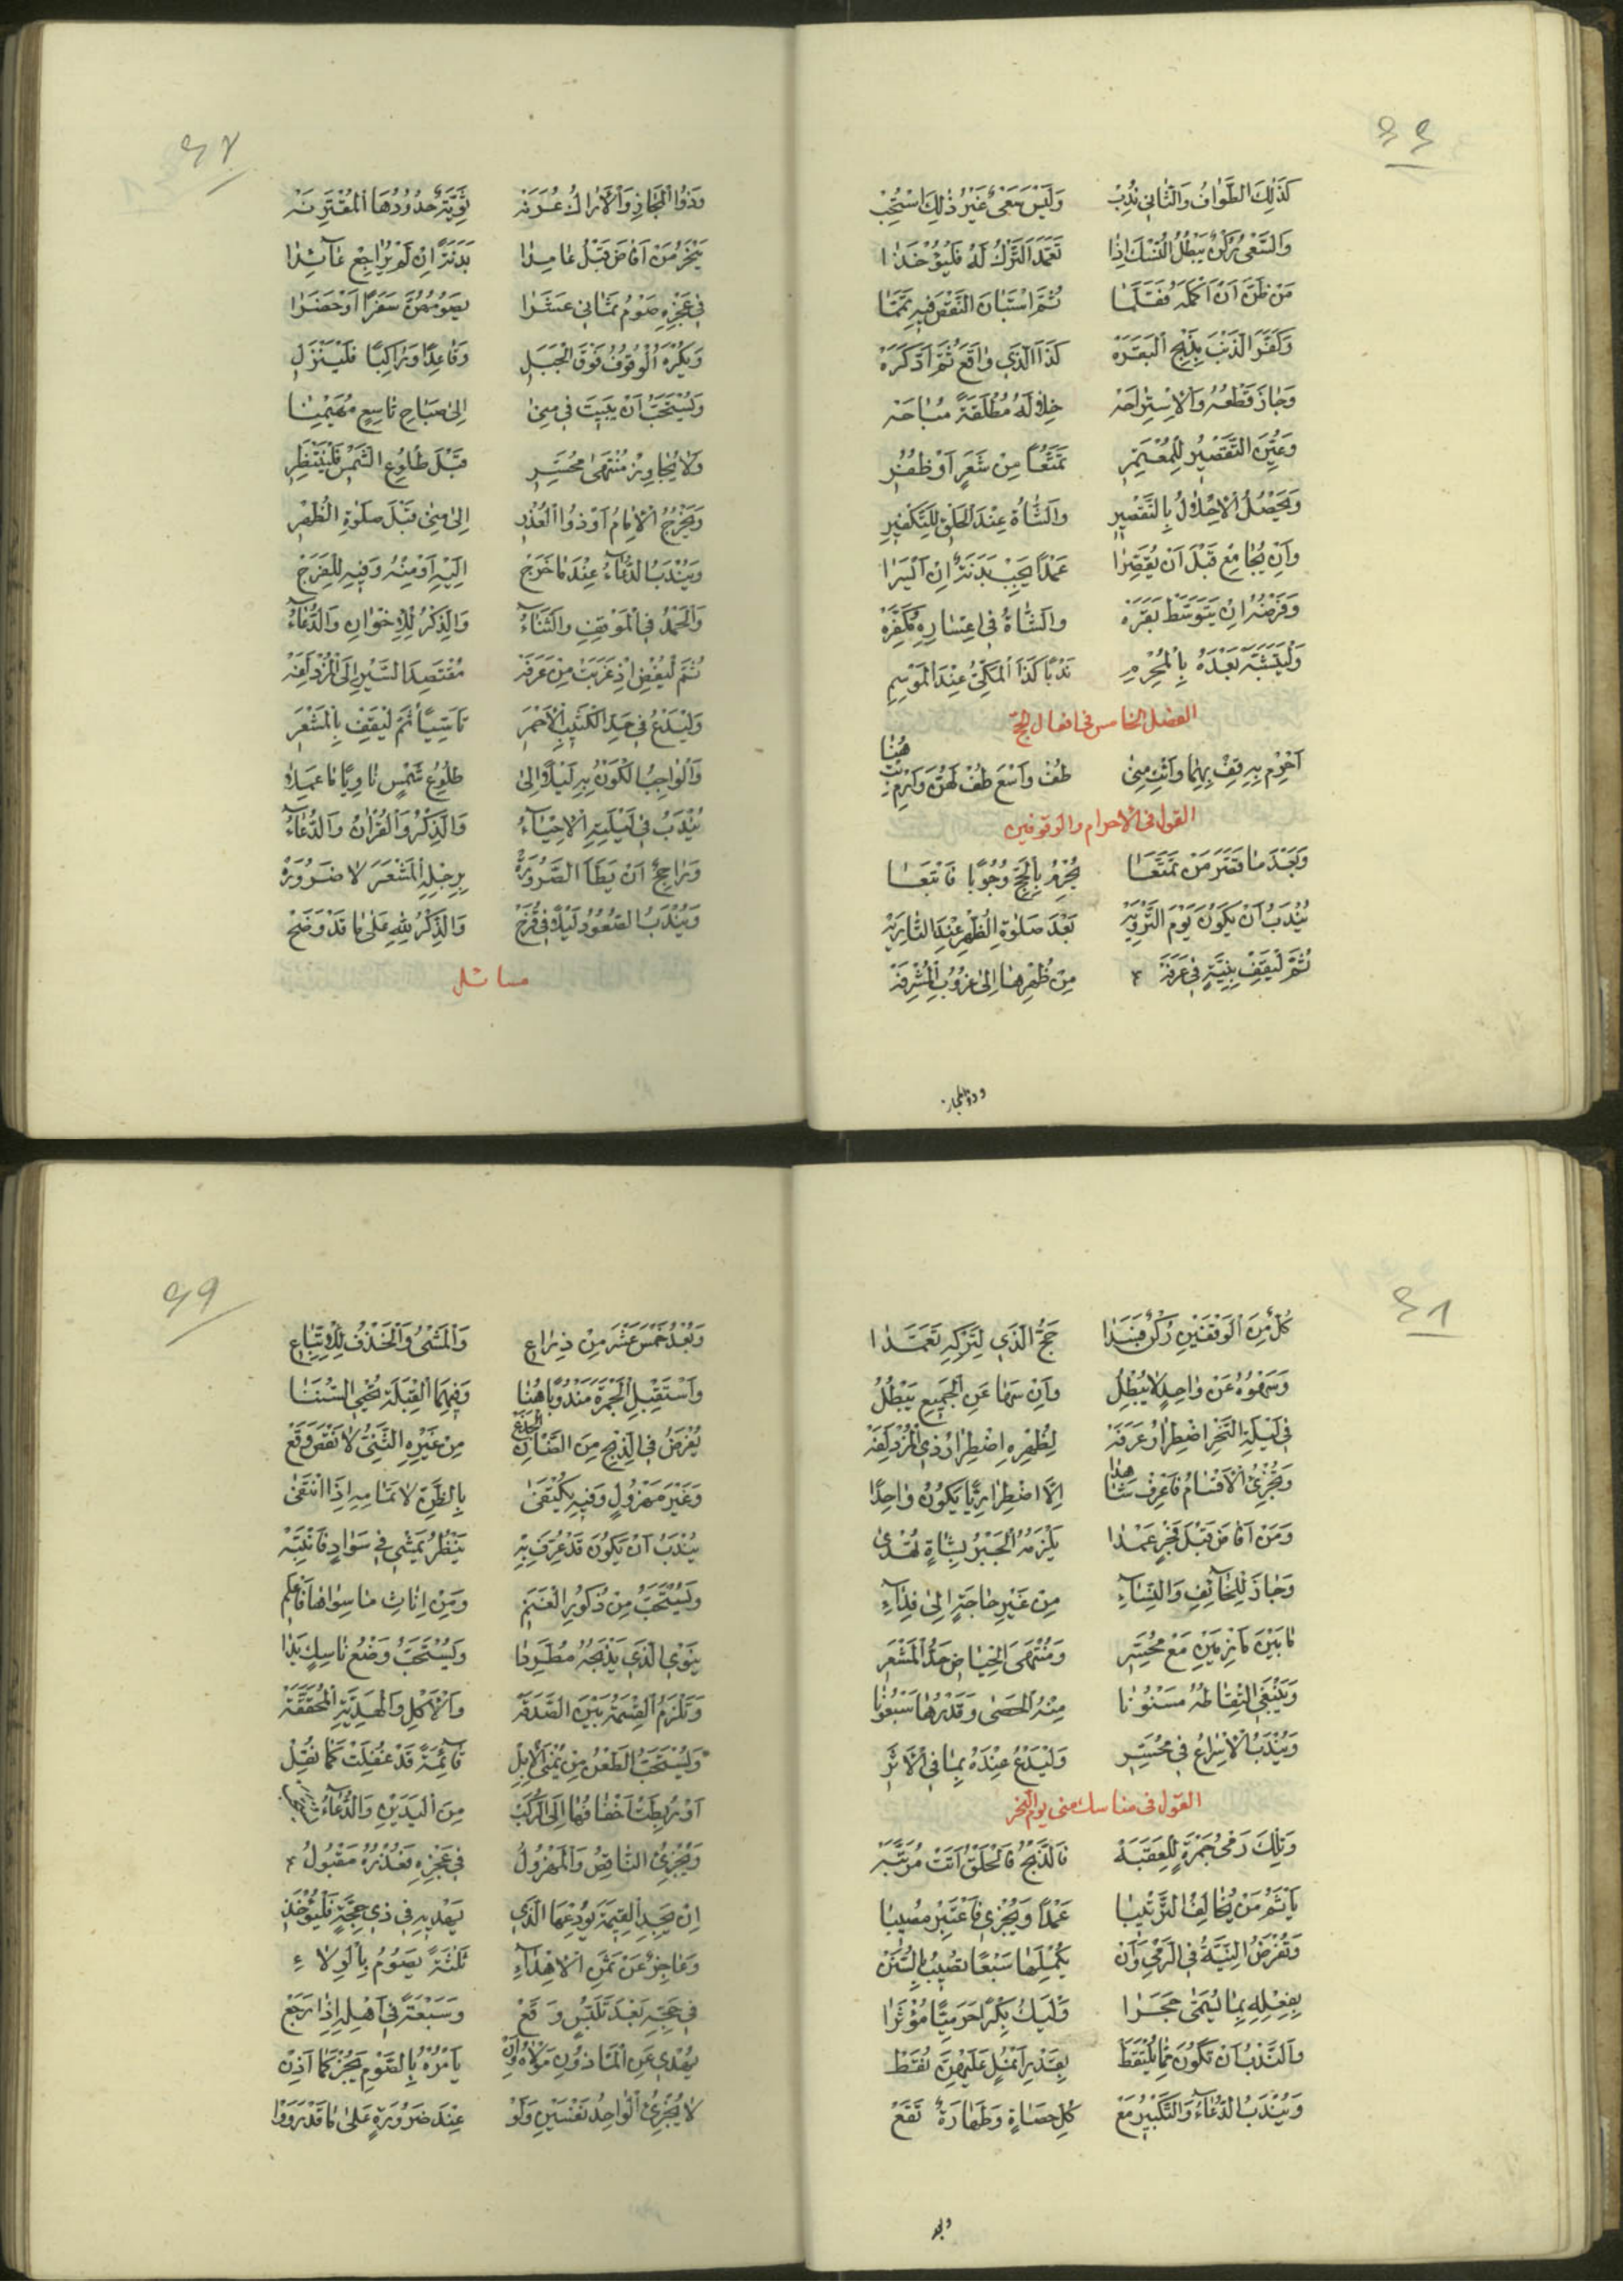 ٤٤
كَذٰلِكَ الطَّوافُ وَالثّانِي نُدِبْ وَلَيْسَ سَعْيٌ غَيْرُ ذٰلِكَ اسْتُحِبْ
وَالسَّعْيُ رُكْنٌ يَبْطُلُ النُّسْكُ اِذا تَعَمَّدَ التَّرْكُ لَهُ فَلْيُؤْخَذا
مَنْ ظَنَّ اَنْ اَكْمَلَهُ فَقَلَّما ثُمَّ اسْتَبانَ النَّقْصُ فيهِ تَمَّما
وَكَفَّرَ الذَّنْبَ بِذَبْحِ الْبَقَرَهْ كَذَا الَّذي واقَعَ ثُمَّ ادَّكَرَهْ
وَجازَ قَطْعُهُ وَالْاِسْتِراحَهْ خِلالَهُ مُطْلَقَةً مُباحَهْ
وَعُيِّنَ التَّقْصيرُ لِلْمُعْتَمِرِ تَمَتُّعاً مِنْ شَعَرٍ اَوْ ظُفُرِ
وَيَحْصُلُ الْاِحْلالُ بِالتَّقْصيرِ وَالشّاةُ عِنْدَ الْحَلْقِ لِلتَّكْفيرِ
وَاِنْ يُجامِعْ قَبْلَ اَنْ يُقَصِّرا عَمْداً يَجِبْ بَدَنَةٌ اِنْ اَيْسَرا
وَفَرْضُهُ اِنْ يَتَوَسَّطْ بَقَرَهْ وَالشّاةُ في اِعْسارِهِ مُكَفِّرَهْ
وَلْيَتَشَبَّهْ بَعْدَهُ بِالْمُحْرِمِ نَدْباً كَذَا الْمَكِّيُّ عِنْدَ الْمَوْسِمِ
الفصل الخامس في افعال الحج
اَحْرِمْ بِهِ وَقِفْ بِهِما وَائْتِ مِنى طُفْ وَاسْعَ طُفْ لَهُنَّ وَارْمِ بِتْ هُنا
القول في الاحرام والوقوفين
وَبَعْدَ ما قَصَّرَ مَنْ تَمَتَّعا يُحْرِمُ بِالْحَجِّ وُجُوباً فَاتْبَعا
يُنْدَبُ اَنْ يَكُونَ يَوْمَ التَّرْوِيَهْ بَعْدَ صَلوةِ الظُّهْرِ عِنْدَ
ثُمَّ لْيَقِفْ بِنِيَّةٍ في عَرَفَهْ مِنْ ظُهْرِها اِلى غُرُوبِ الْمُشْرِفَهْ
وذو المجاز
٤٧
وَذُوا الْمَجازِ وَالْاَراكُ عُرَنَهْ ثَوِيَّةٌ حُدُودُهَا الْمُقْتَرِنَهْ
يَنْحَرُ مَنْ اَفاضَ قَبْلُ عامِدا بَدَنَةً اِنْ لَمْ يُراجِعْ عائِدا
في عَجْزِهِ صَوْمُ ثَماني عَشَرا يَصُومُهُنَّ سَفَراً اَوْ حَضَرا
وَيُكْرَهُ الْوُقُوفُ فَوْقَ الْجَبَلِ وَقاعِداً وَراكِباً فَلْيَنْزِلِ
وَيُسْتَحَبُّ اَنْ يَبيتَ في مِنى اِلى صَباحِ تاسِعٍ مُهَيْمِنا
وَلا يُجاوِزْ مُنْتَهى مُحَسِّرِ قَبْلَ طُلُوعِ الشَّمْسِ فَلْيَنْتَظِرِ
وَيَخْرُجُ الْاِمامُ اَوْ ذُوا الْعُذْرِ اِلى مِنى قَبْلَ صَلوةِ الظُّهْرِ
وَيُنْدَبُ الدُّعاءُ عِنْدَ ما خَرَجْ اِلَيْهِ اَوْ مِنْهُ وَفيهِ لِلْفَرَجْ
وَالْحَمْدُ فِي الْمَوْقِفِ وَالثَّناءُ وَالذِّكْرُ لِلْاِخْوانِ وَالدُّعاءُ
ثُمَّ لْيُفِضْ اِذْ غَرَبَتْ مِنْ عَرَفَهْ مُقْتَصِدَ السَّيْرِ اِلَى الْمُزْدَلِفَهْ
وَلْيَدْعُ في حَدِّ الْكَثيبِ الْاَحْمَرِ تَاَسِّياً ثُمَّ لْيَقِفْ بِالْمَشْعَرِ
وَالْواجِبُ الْكَوْنُ بِهِ لَيْلاً اِلى طُلُوعِ شَمْسٍ ناوِياً ما عَمِلا
يُنْدَبُ في لَيْلَتِهِ الْاِحْياءُ وَالذِّكْرُ وَالْقُرْانُ وَالدُّعاءُ
وَراجِحٌ اَنْ يَطَأَ الصَّرُورَهْ بِرِجْلِهِ الْمَشْعَرَ لا ضَرُورَهْ
وَيُنْدَبُ الصُّعُودُ لَيْلاً في قُزَحْ وَالذِّكْرُ لِلّهِ عَلى ما قَدْ وَضَحْ
مسائل
٤٨
كُلٌّ مِنَ الْوَقْفَيْنِ رُكْنٌ حَجُّ الَّذي لِتَرْكِهِ تَعَمَّدا
وَسَهْوُهُ عَنْ واحِدٍ لا يُبْطِلُ وَاِنْ سَها عَنِ الْجَميعِ يَبْطُلُ
في لَيْلَةِ النَّحْرِ اضْطِرارُ عَرَفَهْ لِظُهْرِهِ اضْطِرارُ ذِي الْمُزْدَلِفَهْ
وَتُجْزِئُ الْاَقْسامُ فَاعْرِفْ هذا اِلَّا اضْطِرارِيّاً يَكُونُ واحِدا
وَمَنْ اَفاضَ قَبْلَ فَجْرٍ عَمْدا يَلْزَمُهُ الْجَبْرُ بِشاةٍ تُهْدى
وَجازَ لِلْخائِفِ وَالنِّساءِ مِنْ غَيْرِ حاجَةٍ اِلى فِداءِ
ما بَيْنَ مَأْزِمَيْنِ مَعْ مُحَسِّرِ وَمُنْتَهَى الْحِياضِ حَدُّ الْمَشْعَرِ
وَيَنْبَغِي الْتِقاطُهُ مَسْنُونا مِنْهُ الْحَصى وَقَدْرُها سَبْعُونا
وَيُنْدَبُ الْاِسْراعُ في مُحَسِّرِ وَلْيَدْعُ عِنْدَهُ بِما فِي الْاَثَرِ
القول في مناسك منى يوم النحر
وَتِلْكَ رَمْيُ جَمْرَةٍ لِلْعَقَبَهْ فَالذَّبْحُ فَالْحَلْقُ اَتَتْ مُرَتَّبَهْ
يَأْثَمُ مَنْ يُخالِفُ التَّرْتيبا عَمْداً وَيُجْزي فَاعْتَبِرْ مُصيبا
وَتُفْرَضُ النِّيَّةُ فِي الرَّمْيِ وَاَنْ يُكْمِلَها سَبْعاً تُصيبُ لِلسُّنَنْ
بِفِعْلِهِ بِما يُسَمّى حَجَرا وَلْيَكُ بِكْراً حَرَمِيّاً مُؤْثَرا
وَالنَّدْبُ اَنْ تَكُونَ مِمّا يُلْتَقَطْ بِقَدْرِ اَنْمُلٍ عَلَيْهِنَّ نُقَطْ
وَيُنْدَبُ الدُّعاءُ وَالتَّكْبيرُ مَعْ كُلِّ حَصاةٍ وَطَهارَةٌ تَقَعْ
وبعد
٤٩
وَبُعْدُ خَمْسَ عَشْرَ مِنْ ذِراعِ وَالْمَشْيُ وَالْخَذْفُ لِلْاِتِّباعِ
وَاسْتَقْبِلِ الْجَمْرَةَ مَنْدُوباً هُنا وَفيهِمَا الْقِبْلَةَ تُحْيِي السُّنَنا
يُفْرَضُ فِي الذِّبْحِ مِنَ الضَّأْنِ الْجَذَعْ مِنْ غَيْرِهِ الثَّنِيُّ لا نَقْصَ وَقَعْ
وَغَيْرَ مَهْزُولٍ وَفيهِ يُكْتَفى بِالظَّنِّ لا تَمامِهِ اِذَا انْتَفى
يُنْدَبُ اَنْ يَكُونَ قَدْ عُرِّفَ بِهْ يَنْظُرُ يَمْشي في سَوادٍ فَانْتَبِهْ
وَيُسْتَحَبُّ مِنْ ذُكُورِ الْغَنَمِ وَمِنْ اِناثِ ما سِواها فَاعْلَمِ
يَنْوِي الَّذي يَذْبَحُهُ مُطَّرِدا وَيُسْتَحَبُّ وَضْعُ ناسِكٍ يَدا
وَتَلْزَمُ الْقِسْمَةُ بَيْنَ الصَّدَقَهْ وَالْاَكْلِ وَالْهَدِيَّةِ الْمُحَقَّقَهْ
وَيُسْتَحَبُّ الطَّعْنُ مِنْ يُمْنَى الْاِبِلْ قائِمَةً قَدْ عُقِلَتْ كَما نُقِلْ
اَوْ رُبِطَتْ اَخْفافُها اِلَى الرُّكَبْ مِنَ الْيَدَيْنِ وَالدُّعاءُ
وَيُجْزِئُ النّاقِصُ وَالْمَهْزُولُ في عَجْزِهِ فَعُذْرُهُ مَقْبُولُ
اِنْ يَجِدِ الْقيمَةَ يُودِعْهَا الَّذي يَهْديهِ في ذي حِجَّةٍ فَلْيُؤْخَذِ
وَعاجِزٌ عَنْ ثَمَنِ الْاِهْداءِ ثَلثَةً يَصُومُ بِالْوِلاءِ
في حَجِّهِ بَعْدَ تَلَبُّسٍ وَقَعْ وَسَبْعَةً في اَهْلِهِ اِذا رَجَعْ
يُهْدي عَنِ الْمَأْذُونِ مَوْلاهُ وَاِنْ يَأْمُرْهُ بِالصَّوْمِ يَجُزْ كَما اُذِنْ
لا يُجْزِئُ الْواحِدُ نَفْسَيْنِ وَلَوْ عِنْدَ ضَرُورَةٍ عَلى ما قَدْ رَوَوْا